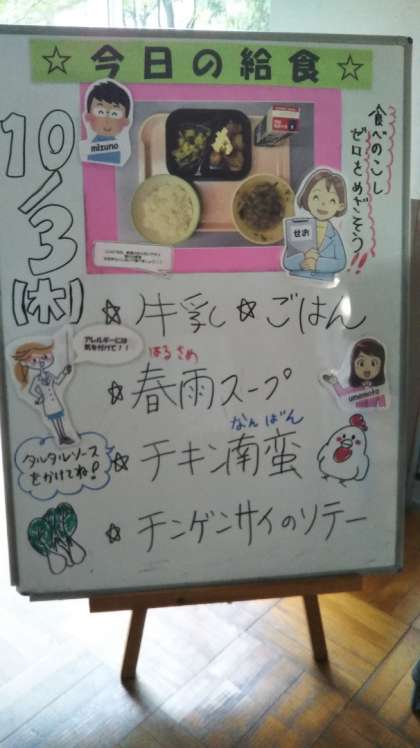 ☆今日の給食☆
10/3
【木】
mizuno
食べのこし
ゼロをめざそう!!
せお
☆牛乳☆ごはん
アレルギーには
気を付けて!!
はるさめ
☆春雨スープ
umemoto
なんばん
☆チキン南蛮
タルタルソース
をかけてね!
☆チンゲンサイのソテー